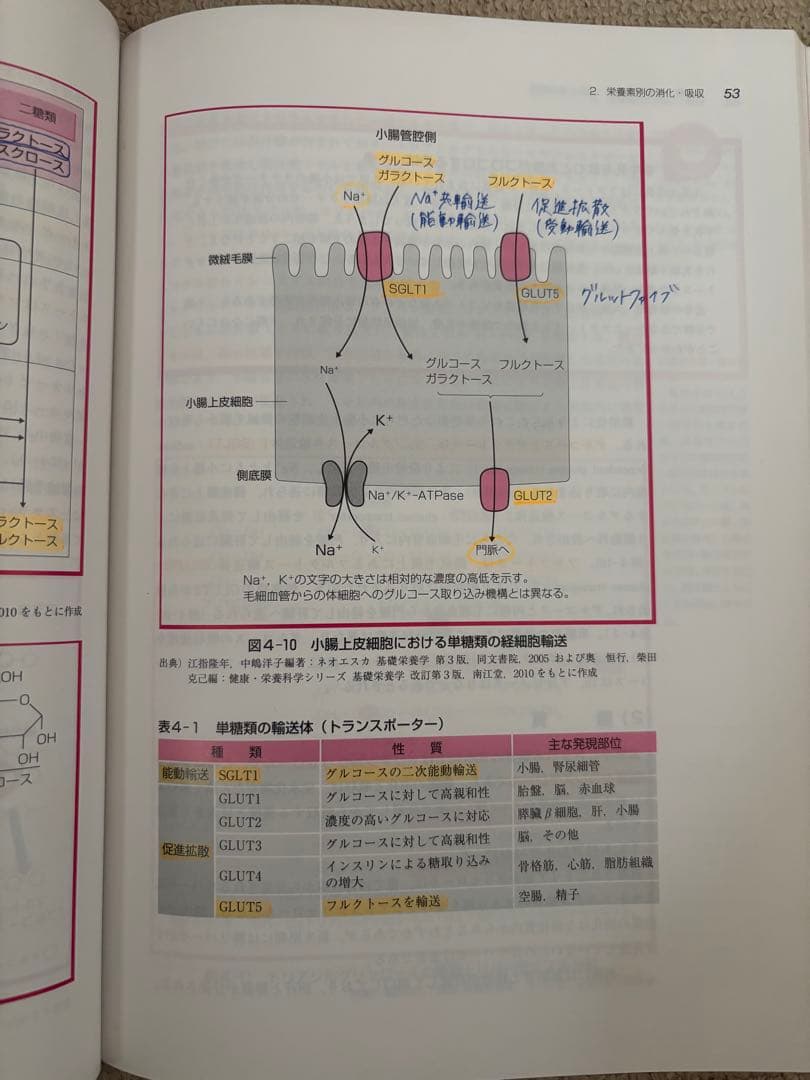 2. 栄養素別の消化・吸収 53
二糖類
ラクトース
スクロース
ラクトース
ルクトース
010 をもとに作成
OH
O
OH
OH
コース
小腸管腔側
グルコース
ガラクトース
フルクトース
Na⁺
Na⁺共輸送
(能動輸送)
促進拡散
(受動輸送)
微絨毛膜
SGLT1
GLUT5
グルットファイブ
Na⁺
グルコース フルクトース
ガラクトース
小腸上皮細胞
K⁺
側底膜
Na⁺/K⁺-ATPase
GLUT2
Na⁺
K⁺
門脈へ
Na⁺, K⁺の文字の大きさは相対的な濃度の高低を示す。
毛細血管からの体細胞へのグルコース取り込み機構とは異なる。
図4-10 小腸上皮細胞における単糖類の経細胞輸送
出典) 江指隆年, 中嶋洋子編著:ネオエスカ 基礎栄養学 第3版, 同文書院, 2005 および奥 恒行, 柴田
克己編:健康・栄養科学シリーズ 基礎栄養学 改訂第3版, 南江堂, 2010をもとに作成
表4-1 単糖類の輸送体(トランスポーター)
種類 性質 主な発現部位
能動輸送 SGLT1 グルコースの二次能動輸送 小腸, 腎尿細管
促進拡散
GLUT1 グルコースに対して高親和性 胎盤, 脳, 赤血球
GLUT2 濃度の高いグルコースに対応 膵臓β細胞, 肝, 小腸
GLUT3 グルコースに対して高親和性 脳, その他
GLUT4 インスリンによる糖取り込み
の増大 骨格筋, 心筋, 脂肪組織
GLUT5 フルクトースを輸送 空腸, 精子